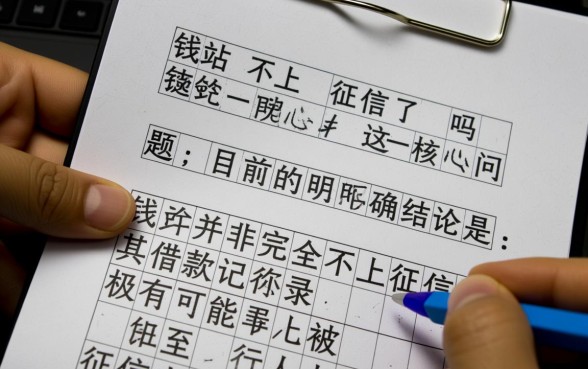 钱站 不上 征信了 吗
一 心 这一核心问
题；目前的明 确结论是：
钱 并非完全不上征信
其借款记 录
极有可能 被
至 行人
征信